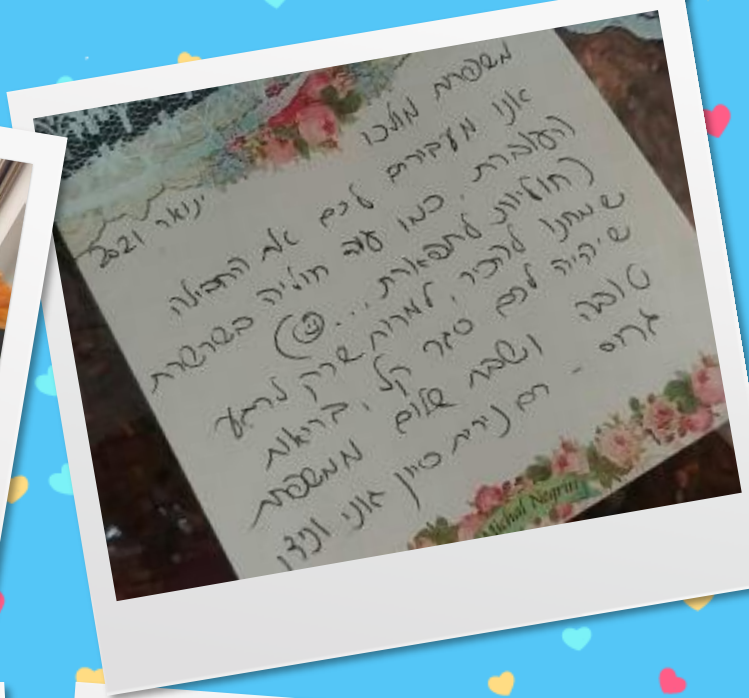 ינואר 2021
משפחת מולכו
אנו מעבירים לכם את החבילה
העוברת, כמו עוד חוליה בשרשרת
(חוליות לתפארת... ☺)
שמחנו להכיר, למרות שרק לרגע
שיהיה לכם סגר קל, בריאות
טובה ושבת שלום ממשפחת
גרוס - רם נירית סיון
Michal Negrin